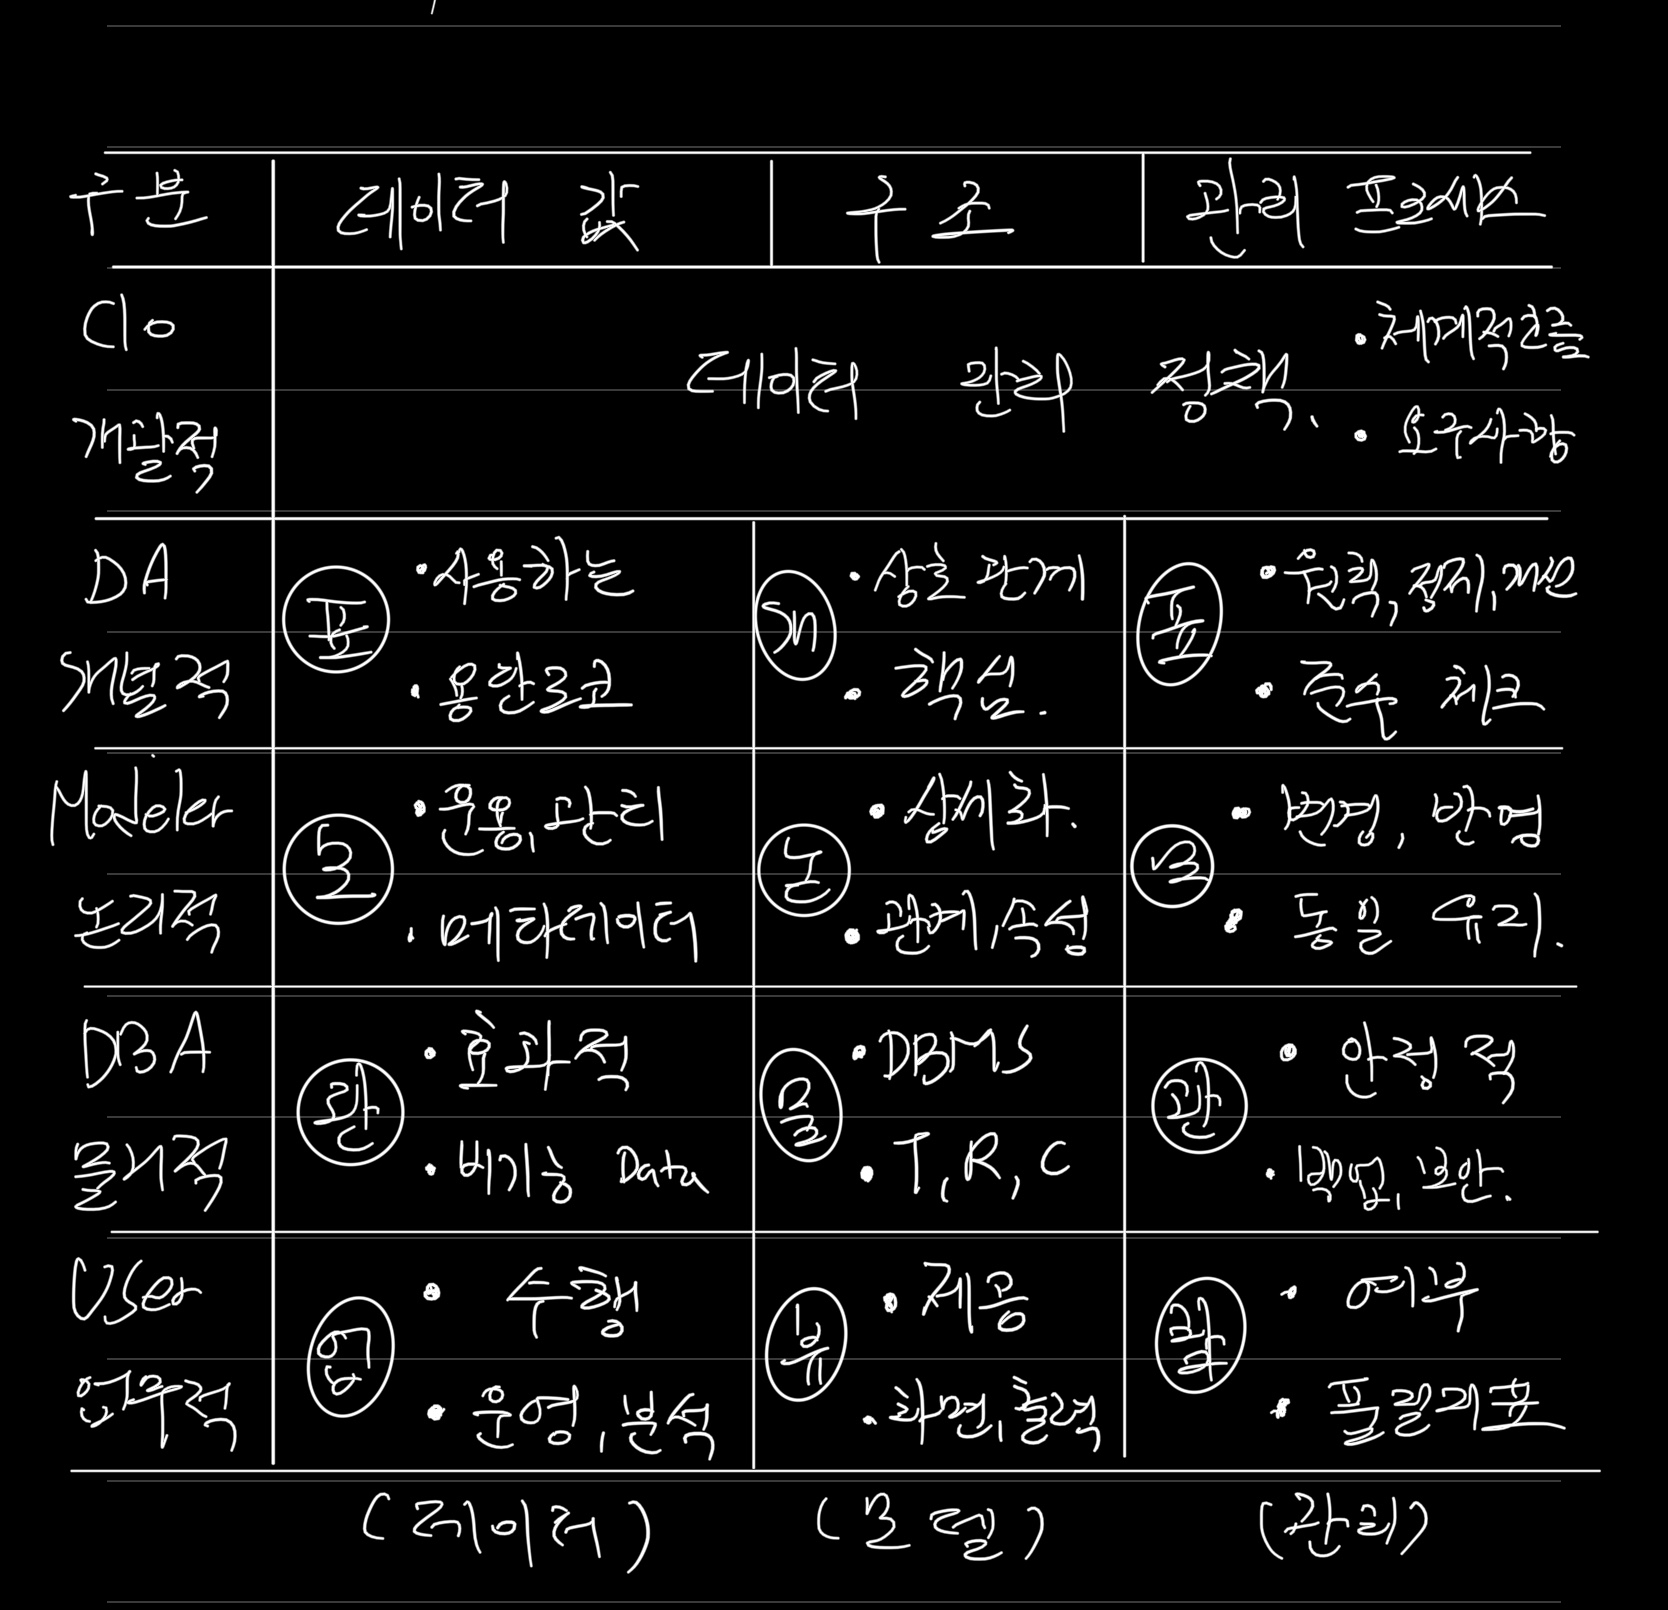 구분 데이터 값 구조 관리 프로세스
CIO
개괄적
데이터 관리 정책.
• 체계적 접근
• 요구사항
DA
개념적
표
• 사용하는
• 용어, 코드
개
• 상호 관계
• 핵심.
표
• 원칙, 정지, 개선
• 준수 체크
Modeler
논리적
모
• 운용, 관리
• 메타데이터
논
• 상세화.
• 관계, 속성
요
• 변경, 반영
• 동일 유지.
DBA
물리적
관
• 효과적
• 비기능 Data
물
• DBMS
• T, R, C
관
• 안정적
• 백업, 보안.
User
업무적
업
• 수행
• 운영, 분석
뷰
• 제공
• 화면, 출력
• 여부
• 품질지표
(데이터) (모델) (관리)